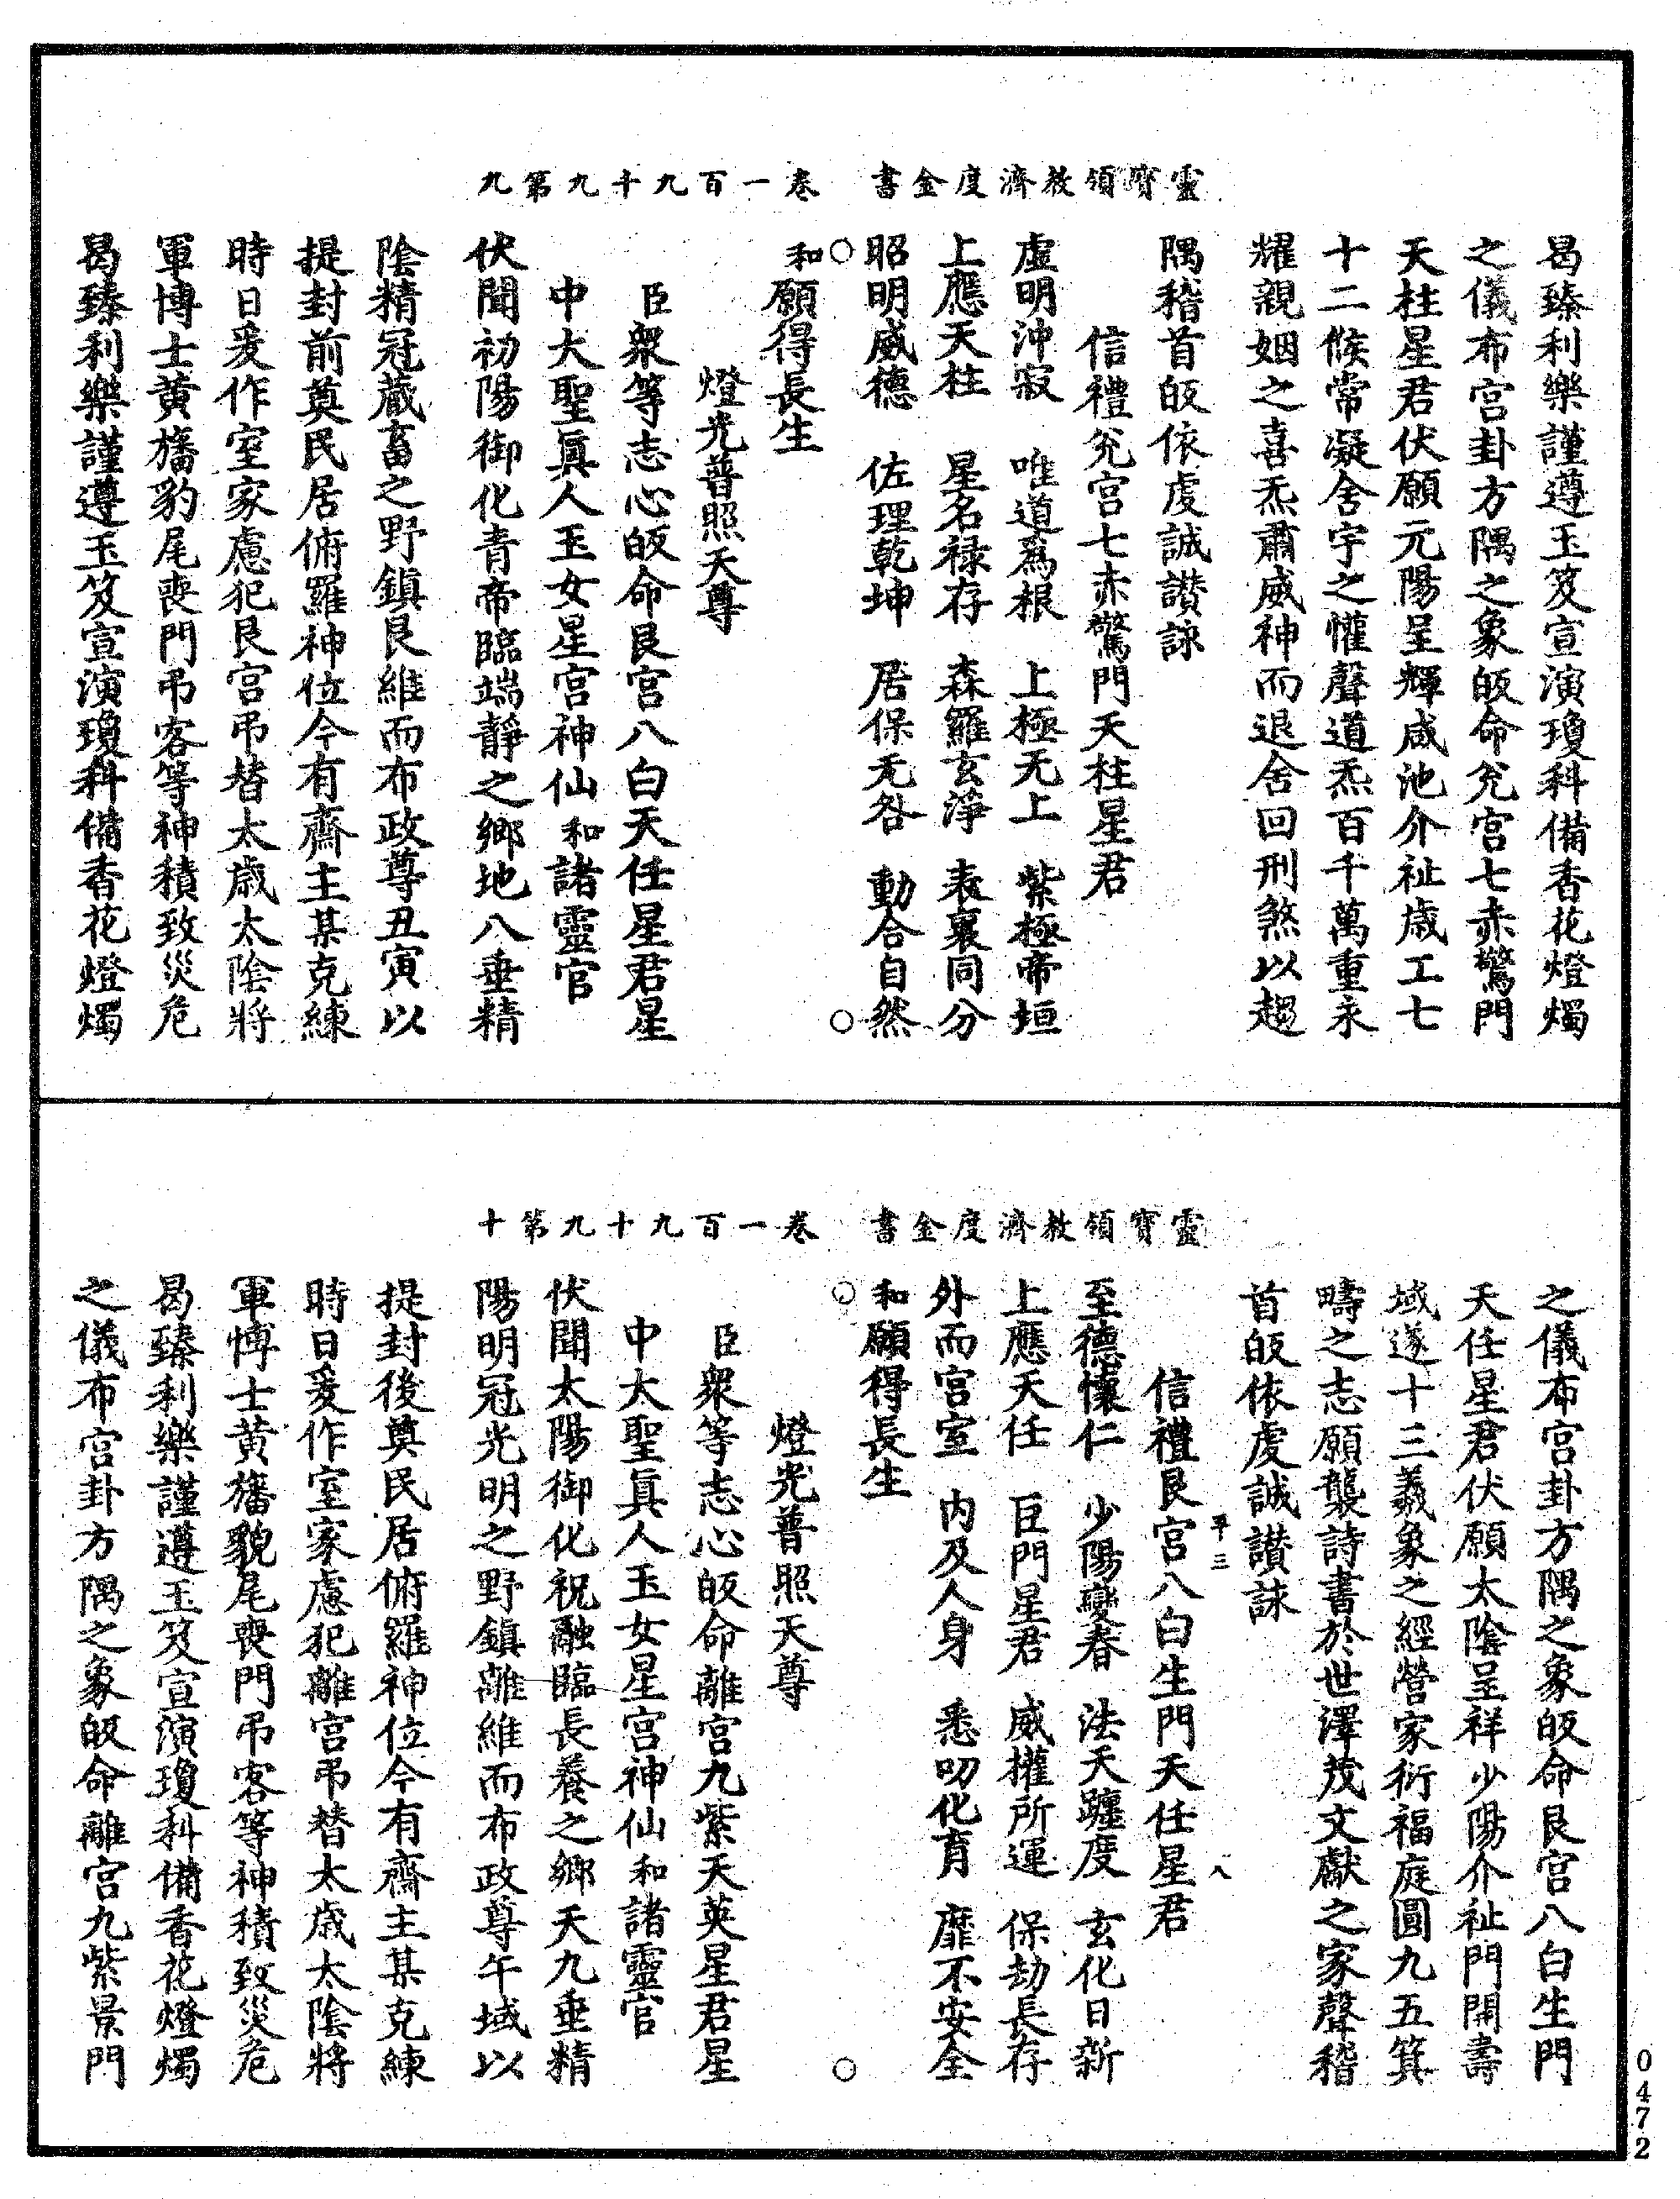 靈寶領教濟度金書　卷一百九十九第九
曷臻利樂謹遵玉笈宣演瓊科備香花燈燭
之儀布宮卦方隅之象皈命兊宮七赤驚門
天柱星君伏願元陽呈輝咸池介祉歲工七
十二候常凝舍宇之懽聲道炁百千萬重永
耀親姻之喜炁肅威神而退舍回刑煞以趨
隅稽首皈依虔誠讃詠
信禮兊宮七赤驚門天柱星君
虛明沖寂　唯道爲根　上極无上　紫極帝垣
上應天柱　星名禄存　森羅玄淨　表裏同分
昭明威德　佐理乾坤　居保无咎　動合自然
○　○
和願得長生
燈光普照天尊
臣衆等志心皈命艮宮八白天任星君星
中大聖眞人玉女星宮神仙和諸靈官
伏聞初陽御化青帝臨端靜之鄉地八垂精
陰精冠蔵畜之野鎮艮維而布政尊丑寅以
提封前奠民居俯羅神位今有齋主某克練
時日爰作室家慮犯艮宮吊替太歲太陰將
軍博士黃旛豹尾喪門吊客等神積致災危
曷臻利樂謹遵玉笈宣演瓊科備香花燈燭
靈寶領教濟度金書　卷一百九十九第十
之儀布宮卦方隅之象皈命艮宮八白生門
天任星君伏願太陰呈祥少陽介祉門開壽
域遂十三羲象之經營家衍福庭圓九五箕
疇之志願襲詩書於世澤茂文獻之家聲稽
首皈依虔誠讃詠
平三　八
信禮艮宮八白生門天任星君
至德懷仁　少陽變春　法天躔度　玄化日新
上應天任　巨門星君　威權所運　保劫長存
外而宮室　内及人身　悉叨化育　靡不安全
○　○
和願得長生
燈光普照天尊
臣衆等志心皈命離宮九紫天英星君星
中大聖眞人玉女星宮神仙和諸靈官
伏聞太陽御化祝融臨長養之鄉天九垂精
陽明冠光明之野鎮離維而布政尊午域以
提封後奠民居俯羅神位今有齋主某克練
時日爰作室家慮犯離宮吊替太歲太陰將
軍愽士黃旛豹尾喪門吊客等神積致災危
曷臻利樂謹遵玉笈宣演瓊科備香花燈燭
之儀布宮卦方隅之象皈命離宮九紫景門
0472